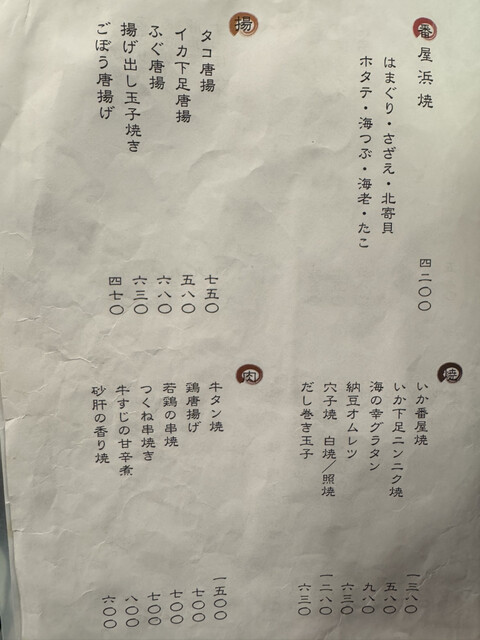 番屋浜焼 四二〇〇
はまぐり・さざえ・北寄貝
ホタテ・海つぶ・海老・たこ
揚
タコ唐揚 七五〇
イカ下足唐揚 五八〇
ふぐ唐揚 六八〇
揚げ出し玉子焼き 六三〇
ごぼう唐揚げ 四七〇
焼
いか番屋焼 一三八〇
いか下足ニンニク焼 五八〇
海の幸グラタン 九八〇
納豆オムレツ 六三〇
穴子焼 白焼／照焼 一二八〇
だし巻き玉子 六三〇
肉
牛タン焼 一五〇〇
鶏唐揚げ 七〇〇
若鶏の串焼 七〇〇
つくね串焼き 七〇〇
牛すじの甘辛煮 八〇〇
砂肝の香り焼 六〇〇